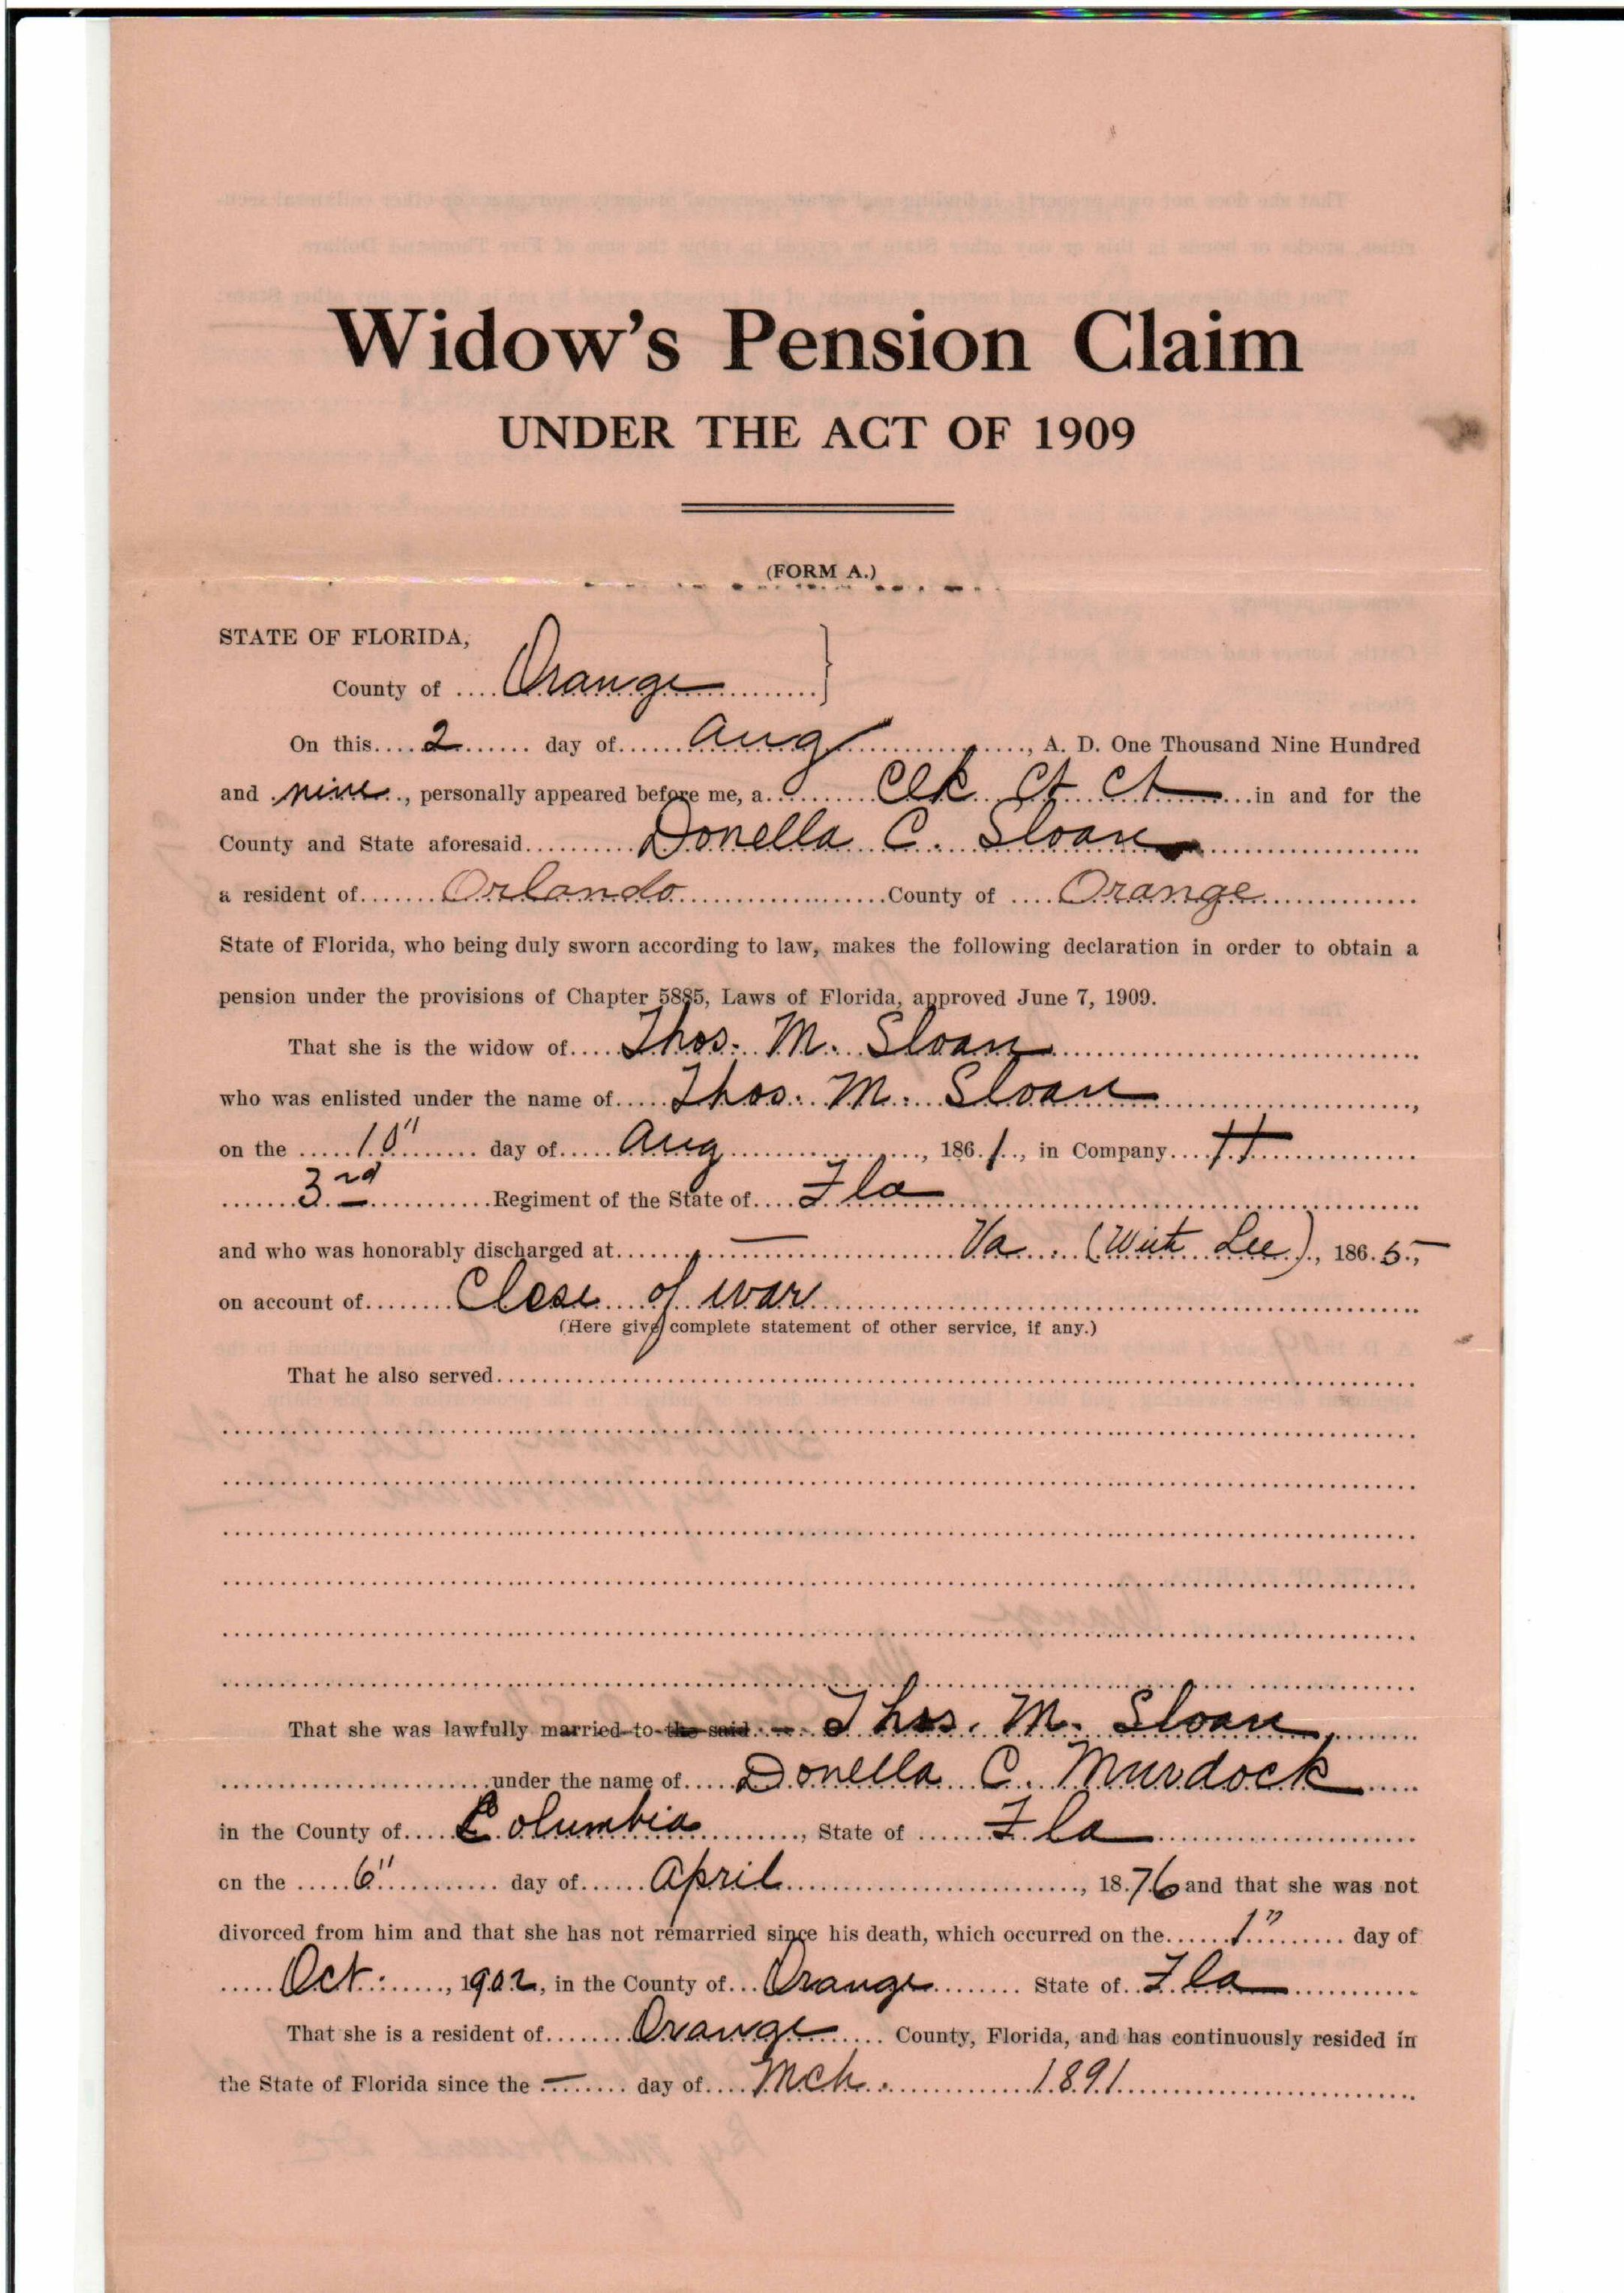 Widow's Pension Claim
UNDER THE ACT OF 1909
(FORM A.)
STATE OF FLORIDA,
County of Orange
On this 2 day of Aug, A. D. One Thousand Nine Hundred
and nine, personally appeared before me, a Clk Ct Ct in and for the
County and State aforesaid Donella C. Sloan
a resident of Orlando County of Orange
State of Florida, who being duly sworn according to law, makes the following declaration in order to obtain a
pension under the provisions of Chapter 5885, Laws of Florida, approved June 7, 1909.
That she is the widow of Thos. M. Sloan
who was enlisted under the name of Thos. M. Sloan,
on the 10" day of Aug, 1861, in Company H
3rd Regiment of the State of Fla
and who was honorably discharged at — Va. (With Lee), 1865,
on account of Close of war
(Here give complete statement of other service, if any.)
That he also served
That she was lawfully married to the said Thos. M. Sloan
under the name of Donella C. Murdock
in the County of Columbia, State of Fla
on the 6" day of April, 1876 and that she was not
divorced from him and that she has not remarried since his death, which occurred on the 1" day of
Oct., 1902, in the County of Orange State of Fla
That she is a resident of Orange County, Florida, and has continuously resided in
the State of Florida since the — day of Mch. 1891